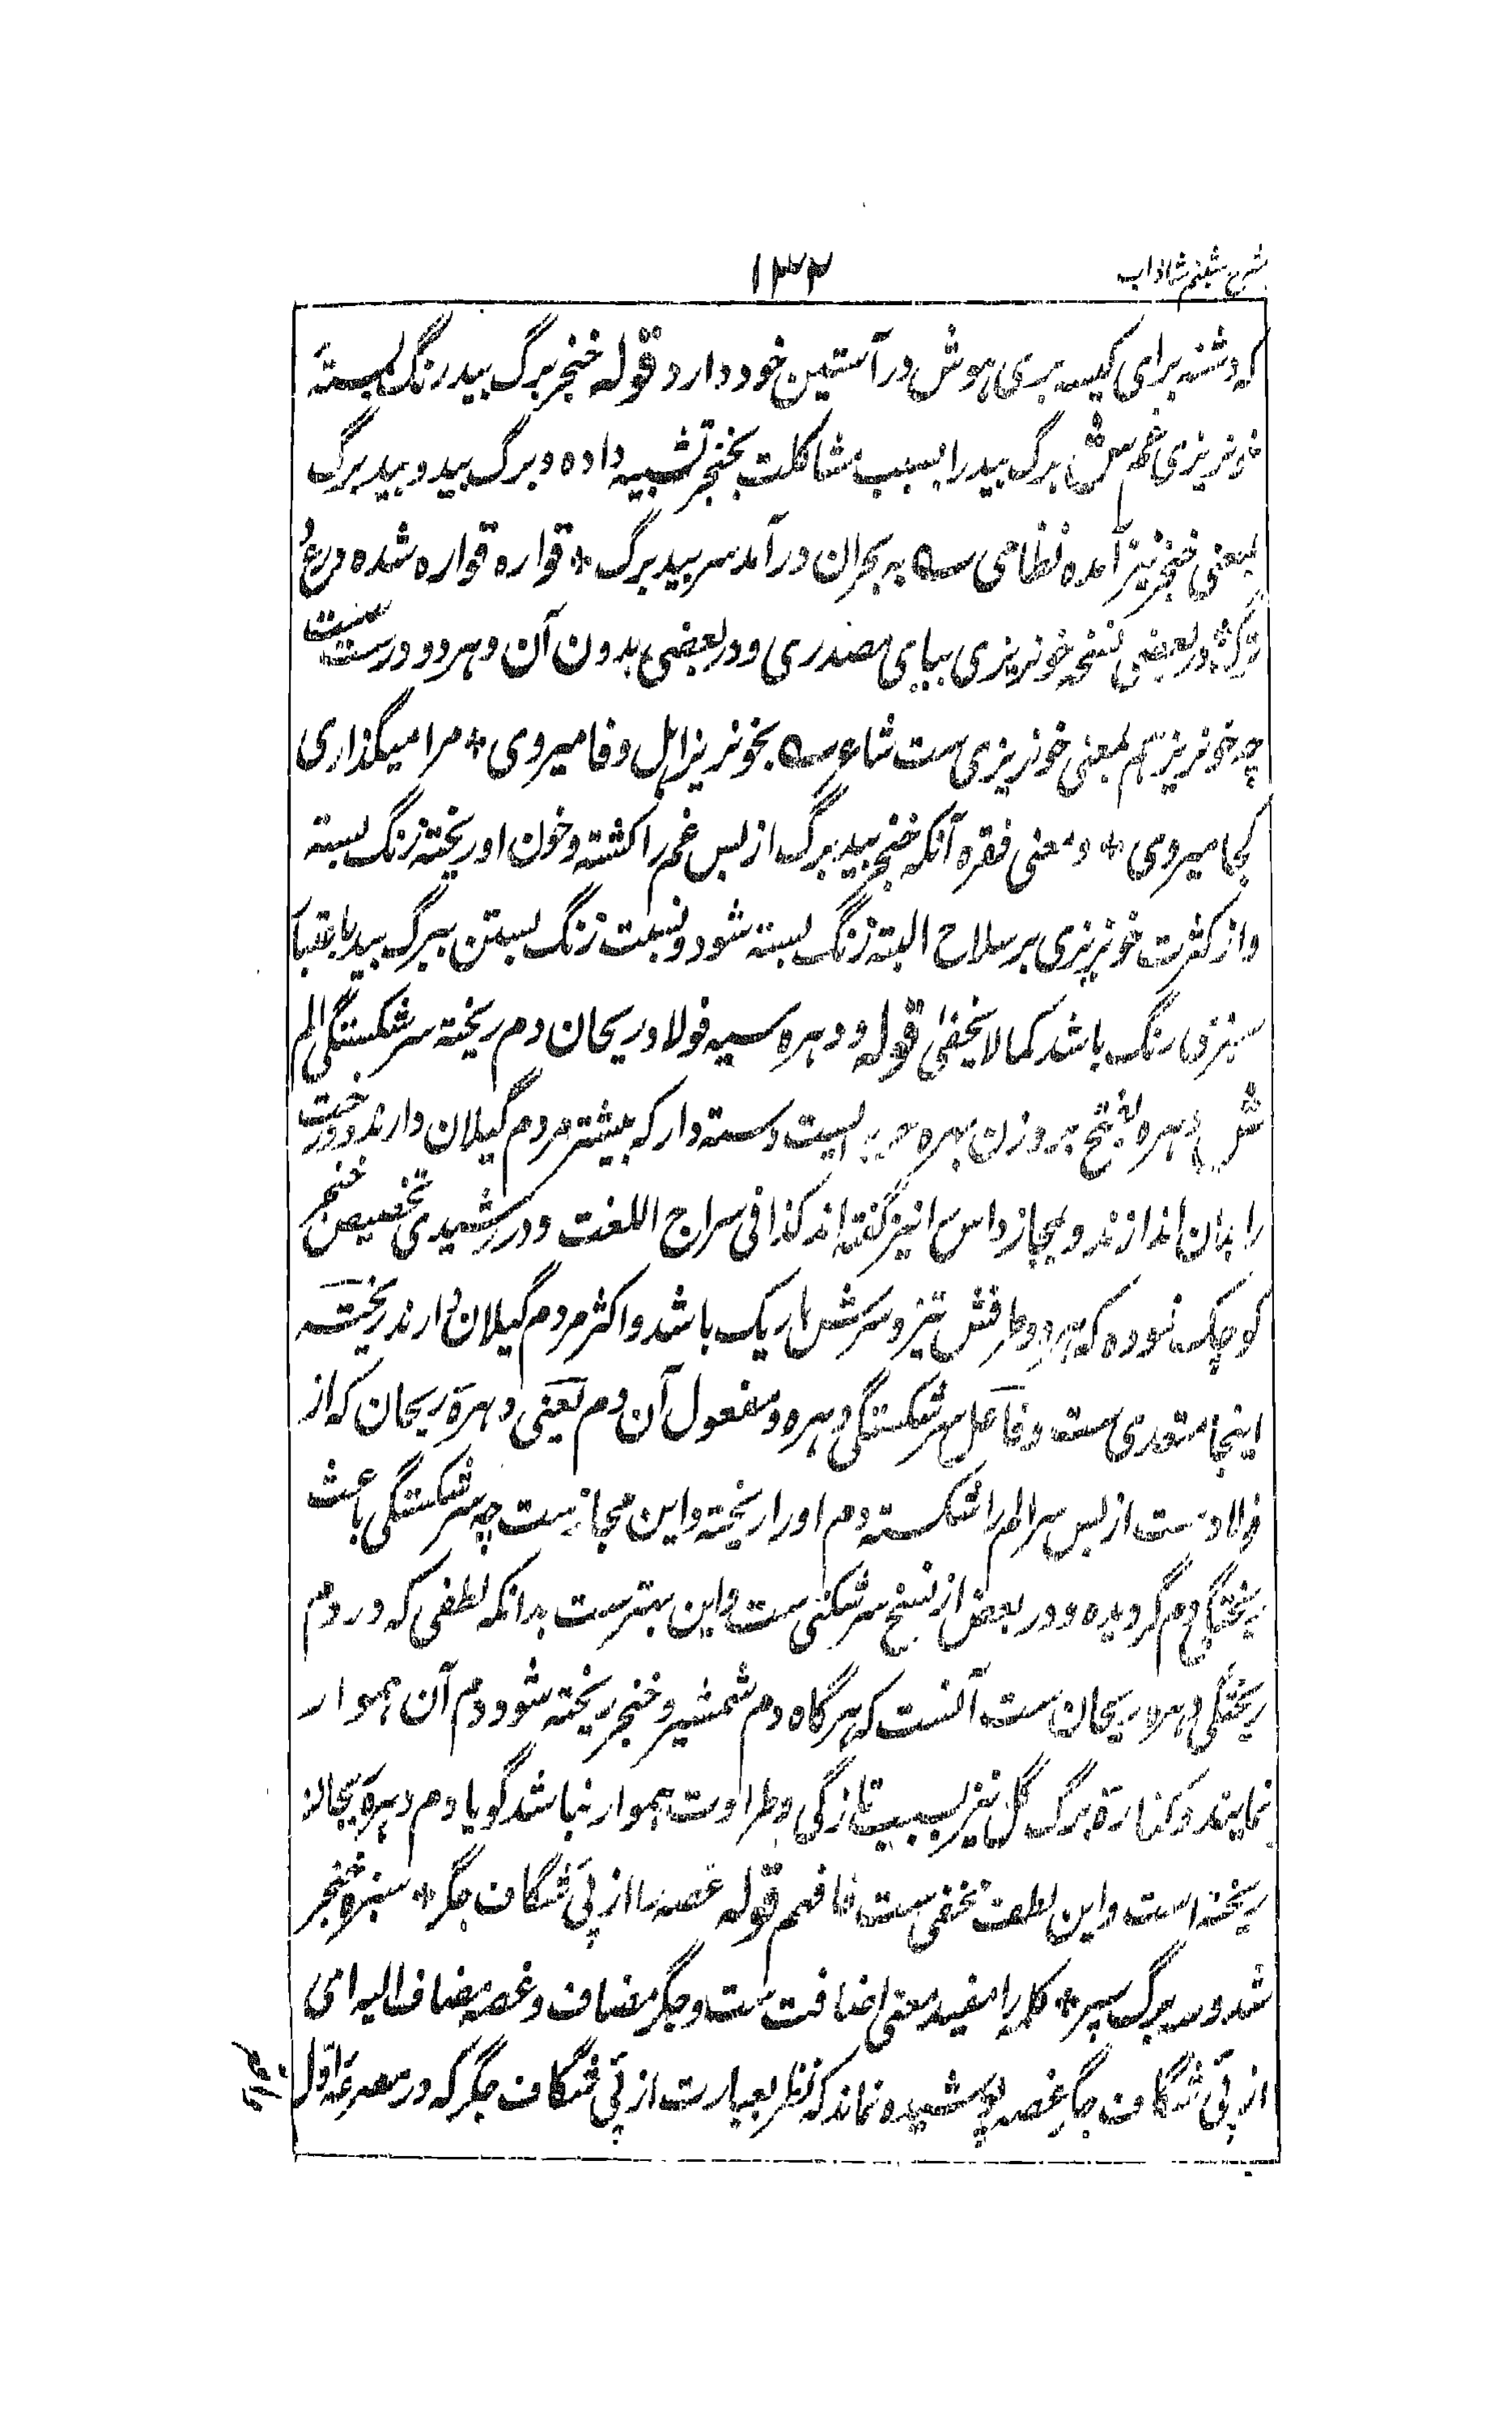 شرح شبنم شاداب
۱۳۲
که دشنه برای کیسه بری هوش در آستین خود دارد قوله خنجر برگ بید زنگ بستهٔ
خونریزی غم ش برگ بید را بسبب مشاکلت بخنجر تشبیه داده و برگ بید و بید برگ
بمعنی خنجر نیز آمده نظامی ؎ به بحران در آمد سر بید برگ * قواره قواره شده درع و
ترگ * در بعضی نسخه خونریزی بیای مصدری و در بعضی بدون آن و هر دو درست ست
چه خونریز هم بمعنی خونریزی ست شاعر ؎ بخونریز اهل وفا میروی * مرا میگذاری
کجا میروی * و معنی فقره آنکه خنجر بید برگ از بس غم را کشته و خون او ریخته زنگ بسته
و از کثرت خونریزی بر سلاح البته زنگ بسته شود و نسبت زنگ بستن ببرگ بید باعتبار
سبزی رنگ باشد کما لا یخفی قوله و دهره سیه فولاد ریحان دم ریخته سرشکستگی الم
ش دهره بفتح بر وزن بهره حربه ایست دسته دار که بیشتر مردم گیلان دارند و درخت
را بدان اندازند و بمجاز داس را نیز گفته اند کذا فی سراج اللغت و در رشیدی تخصیص خنجر
کوچک نموده که هر دو طرفش تیز و سرش باریک باشد و اکثر مردم گیلان دارند ریخته
اینجا متعدی ست و فاعل سرشکستگی دهره و مفعول آن دم یعنی دهرهٔ ریحان که از
فولادست از بس سر الم را شکسته دم او را ریخته و این مجازیست چه سرشکستگی باعث
ریختگی دم گردیده و در بعض از نسخ سرشکنی ست و این بهترست بدانکه لطفی که در دم
ریختگی دهره ریحان ست آنست که هرگاه دم شمشیر و خنجر ریخته شود دم آن هموار
نمایند و کنارهٔ برگ گل نیز بسبب تازگی و طراوت هموار نباشد گویا دم دهرهٔ ریحان
ریخته است و این لطف مخفی ست فافهم قوله غصه را از پی شگاف جگر * سبزه خنجر
شد و برگ سپر * کلمه را مفید معنی اضافت ست و جگر مضاف و غصه مضاف الیه ای
از پی شگاف جگر غصه پوشیده نماند که نظر بعبارت از پی شگاف جگر که در مصرعهٔ اول